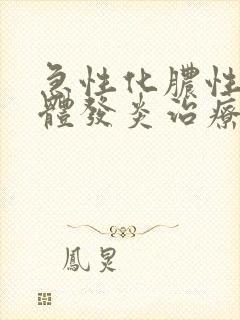 急性化膿性
體發炎治療
鳳炅